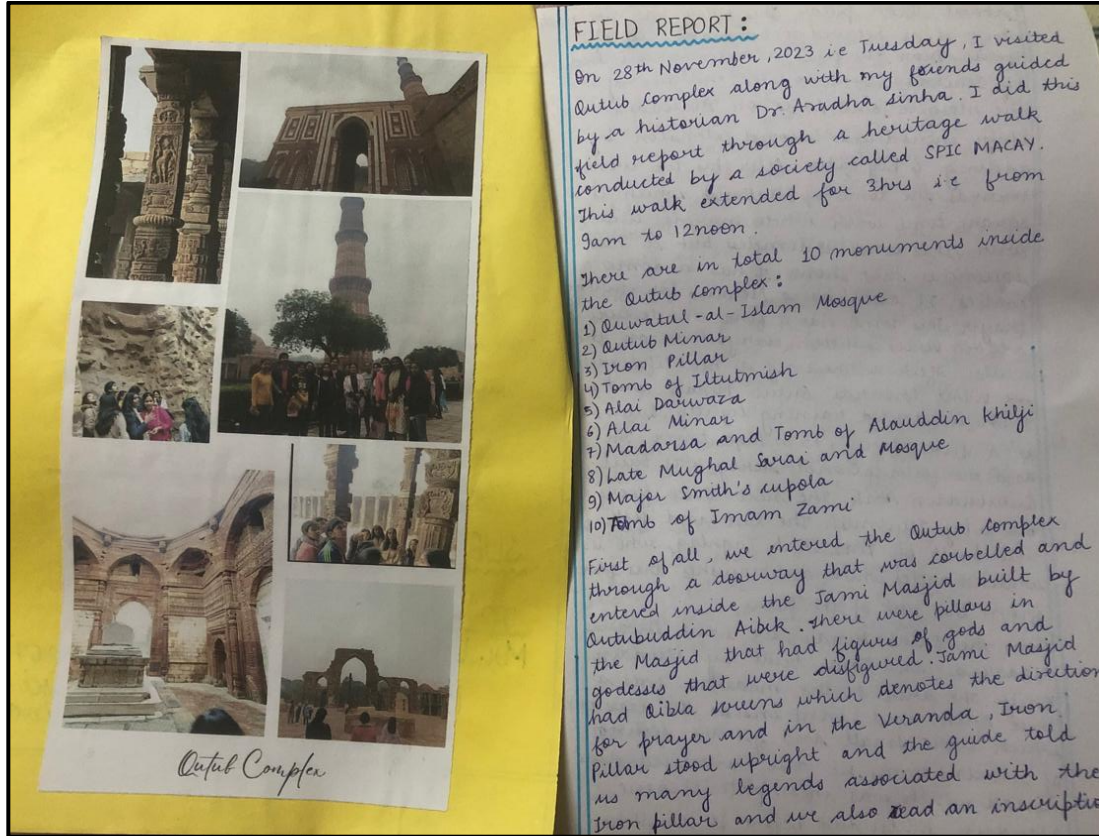 Qutub Complex
FIELD REPORT:
On 28th November, 2023 i.e Tuesday, I visited
Qutub Complex along with my friends guided
by a historian Dr. Aradha Sinha. I did this
field report through a heritage walk
conducted by a society called SPIC MACAY.
This walk extended for 3hrs i.e from
9am to 12noon.
There are in total 10 monuments inside
the Qutub Complex:
1) Quwatul-al-Islam Mosque
2) Qutub Minar
3) Iron Pillar
4) Tomb of Iltutmish
5) Alai Darwaza
6) Alai Minar
7) Madarsa and Tomb of Alauddin Khilji
8) Late Mughal Sarai and Mosque
9) Major Smith's cupola
10) Tomb of Imam Zami
First of all, we entered the Qutub Complex
through a doorway that was corbelled and
entered inside the Jami Masjid built by
Qutubuddin Aibek. There were pillars in
the Masjid that had figures of gods and
godesses that were disfigured. Jami Masjid
had Qibla screens which denotes the direction
for prayer and in the Veranda, Iron
Pillar stood upright and the guide told
us many legends associated with the
Iron pillar and we also read an inscriptio